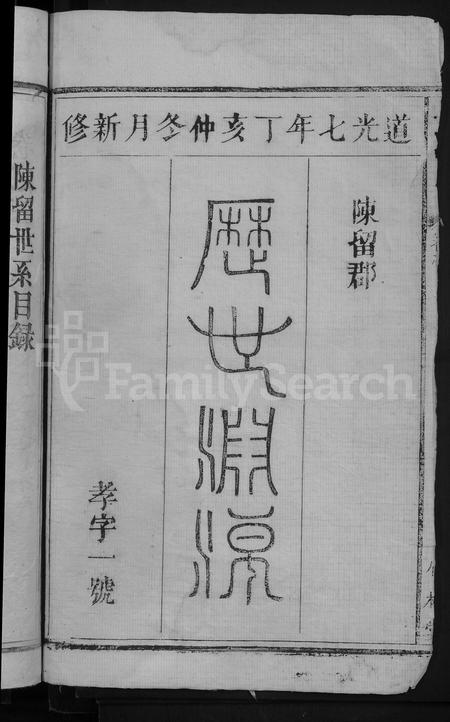 道光七年丁亥仲冬月新修
陳留郡
歷世淵源
孝字一號
陳留世系目録
FamilySearch